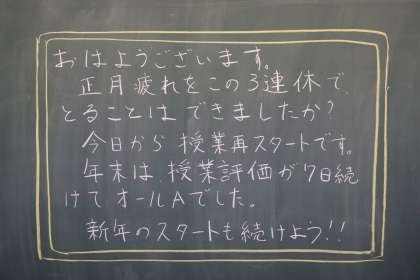 おはようございます。
正月疲れをこの3連休で、
とることはできましたか?
今日から授業再スタートです。
年末は、授業評価が7日続
けてオールAでした。
新年のスタートも続けよう!!